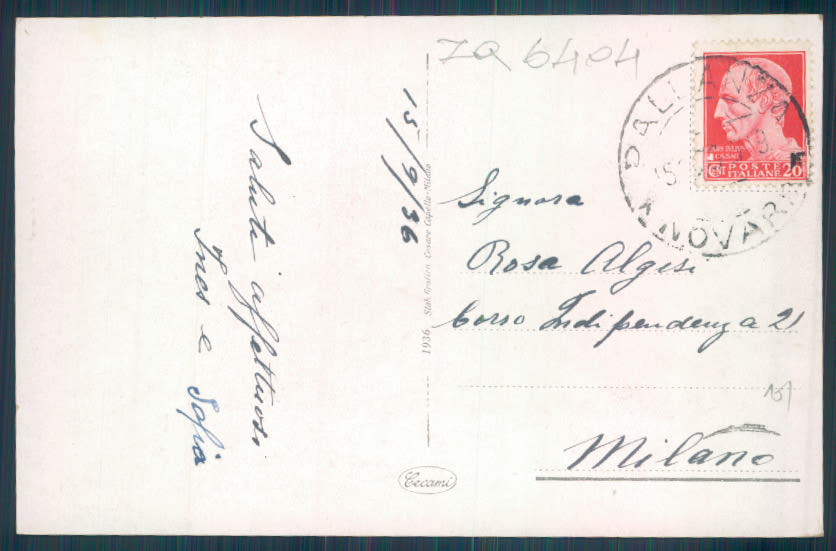 ZQ 6404
15/9/36
Saluti affettuosi
Ines e Sofia
1936 Stab. Grafico Cesare Capello-Milano
Cecami
PALLANZA
NOVARA
POSTE
CENT ITALIANE 20
Signora
Rosa Algisi
Corso Indipendenza 21
Milano